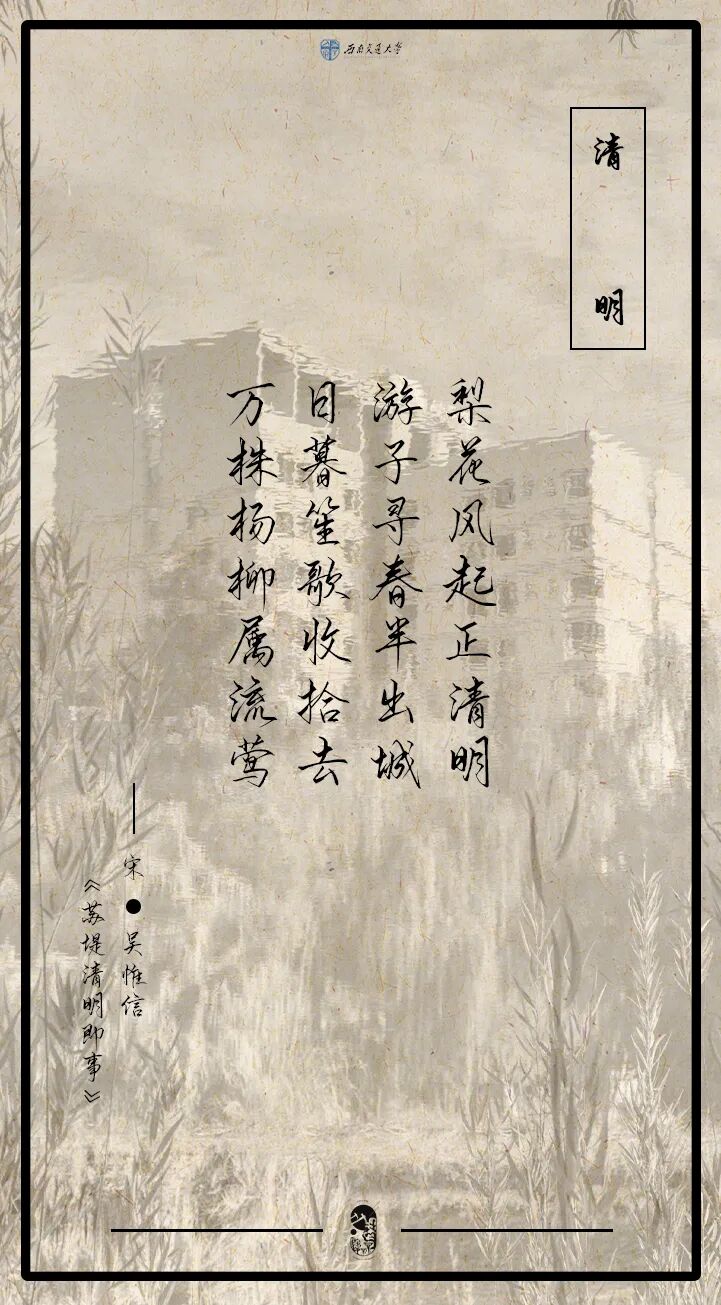 西南交通大学
清明
梨花风起正清明
游子寻春半出城
日暮笙歌收拾去
万株杨柳属流莺
——宋●吴惟信
《苏堤清明即事》